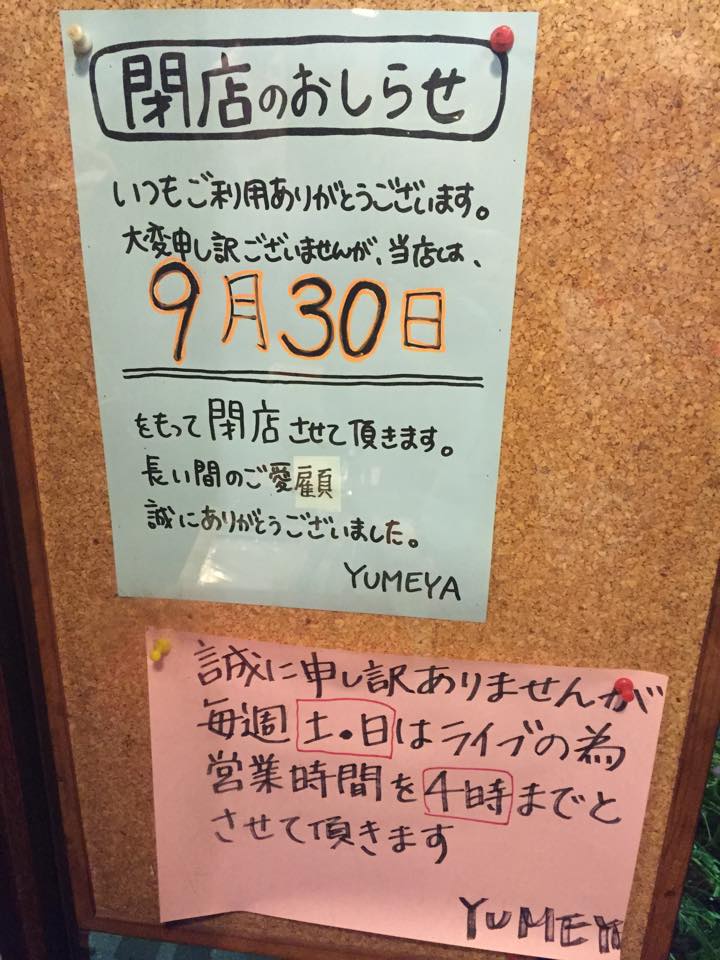 閉店のおしらせ
いつもご利用ありがとうございます。
大変申し訳ございませんが、当店は、
9月30日
をもって閉店させて頂きます。
長い間のご愛顧
誠にありがとうございました。
YUMEYA
誠に申し訳ありませんが
毎週土・日はライブの為
営業時間を4時までと
させて頂きます
YUMEYA